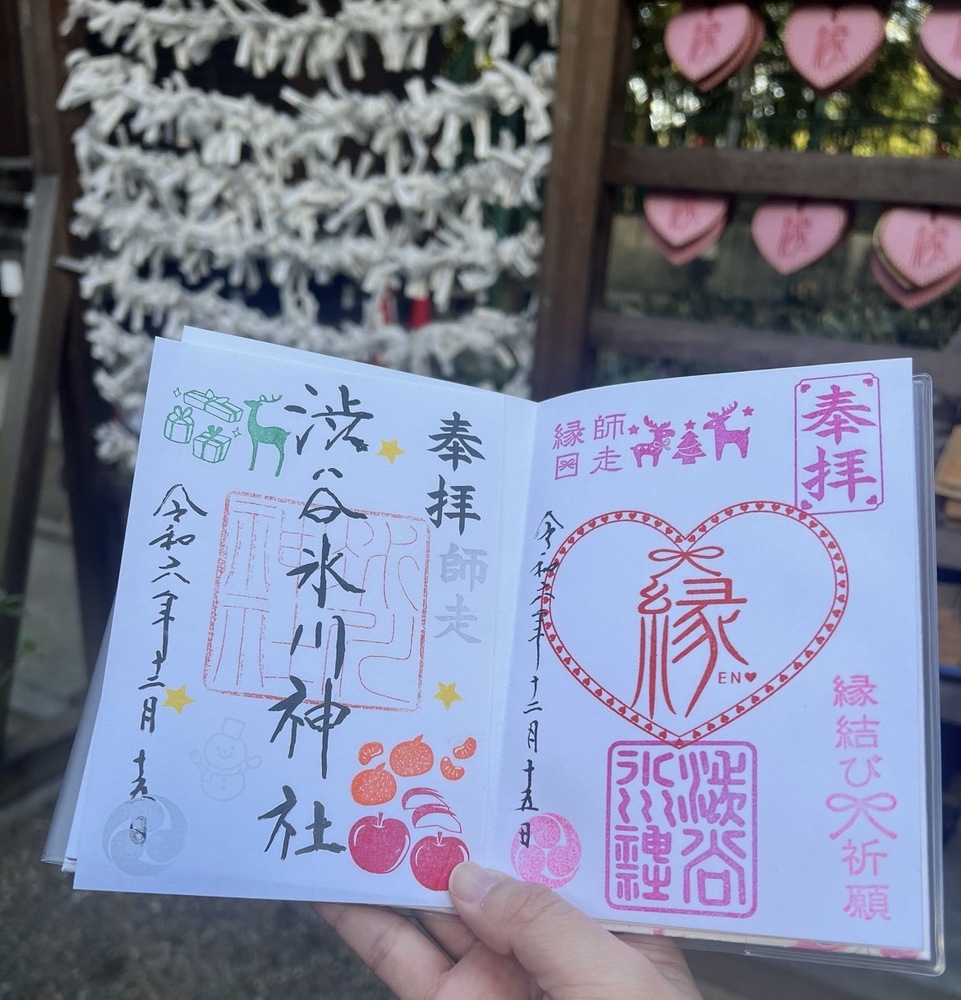 奉拝
師走
渋谷氷川神社
令和六年十二月十五日
奉拝
師走
縁日
縁
EN
縁結び
祈願
令和六年十二月十五日
渋谷
氷川
神社
縁
縁
縁
縁
縁